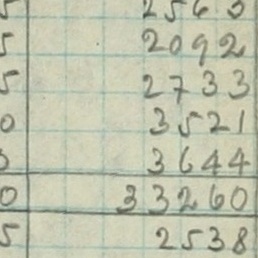 5 2563
5 2092
5 2733
0 3521
3644
0 33260
5 2538